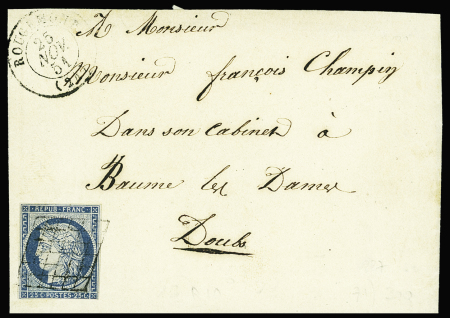 25
NOV.
51
(24)
A Monsieur
Monsieur françois Champin
Dans son cabinet à
Baume les Dames
Doubs
REPUB. FRANC.
25 C. POSTES 25 C.